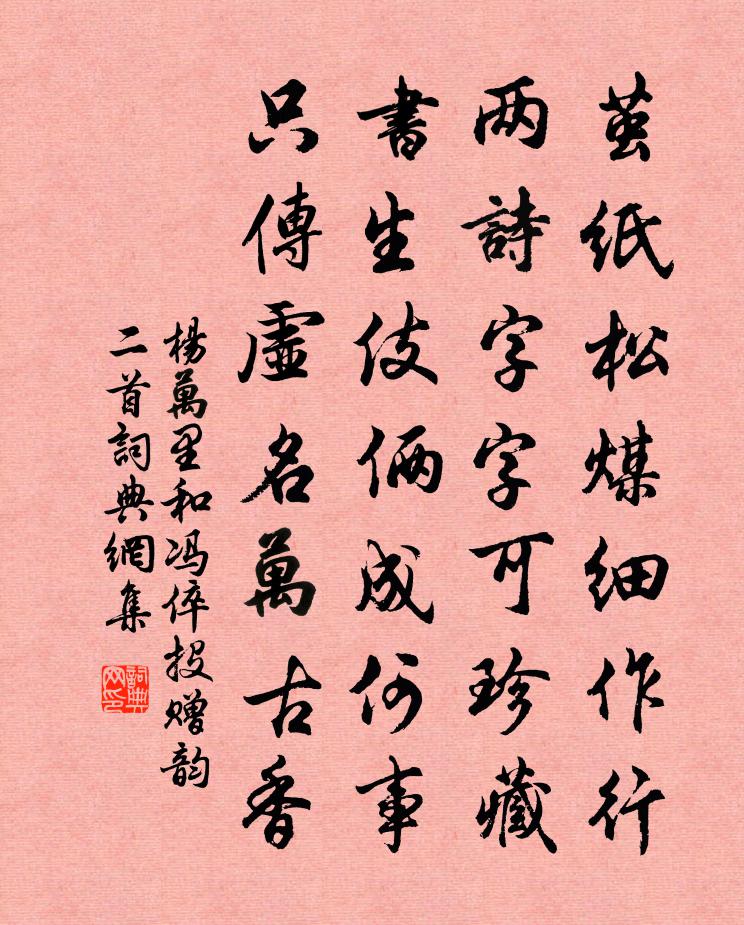 茧纸松煤细作行
两詩字字可珍藏
書生伎倆成何事
只傳虛名萬古香
楊萬里和冯倅投赠韵
二首詞典網集
詞典網印